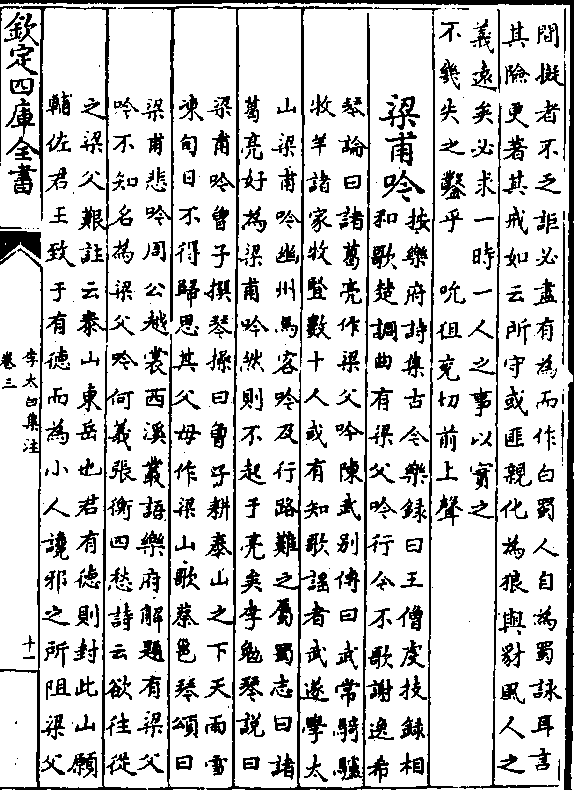 間擬者不乏詎必盡有為而作白蜀人自為蜀詠耳言
其險更著其戒如云所守或匪親化為狼與豺風人之
義遠矣必求一時一人之事以實之
不幾失之鑿乎 吮徂兖切前上聲
梁甫吟
按樂府詩集古今樂録曰王僧虔技録相
和歌楚調曲有梁父吟行今不歌謝逸希
琴論曰諸葛亮作梁父吟陳武別傳曰武常騎驢
牧羊諸家牧豎數十人或有知歌謡者武遂學太
山梁甫吟幽州馬客吟及行路難之屬蜀志曰諸
葛亮好為梁甫吟然則不起于亮矣李勉琴説曰
梁甫吟曾子撰琴操曰曾子耕泰山之下天雨雪
凍旬日不得歸思其父母作梁山歌蔡邕琴頌曰
梁甫悲吟周公越裳西溪叢語樂府解題有梁父
吟不知名為梁父吟何義張衡四愁詩云欲往從
之梁父艱註云泰山東岳也君有徳則封此山願
輔佐君王致于有徳而為小人讒邪之所阻梁父
欽定四庫全書
李太白集注
卷三
十一